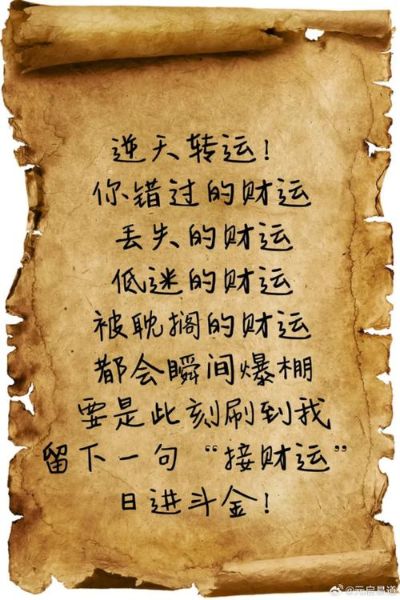 逆天转运！
你错过的财运
丢失的财运
低迷的财运
被耽搁的财运
都会瞬间爆棚
要是此刻刷到我
留下一句“接财运”
日进斗金！